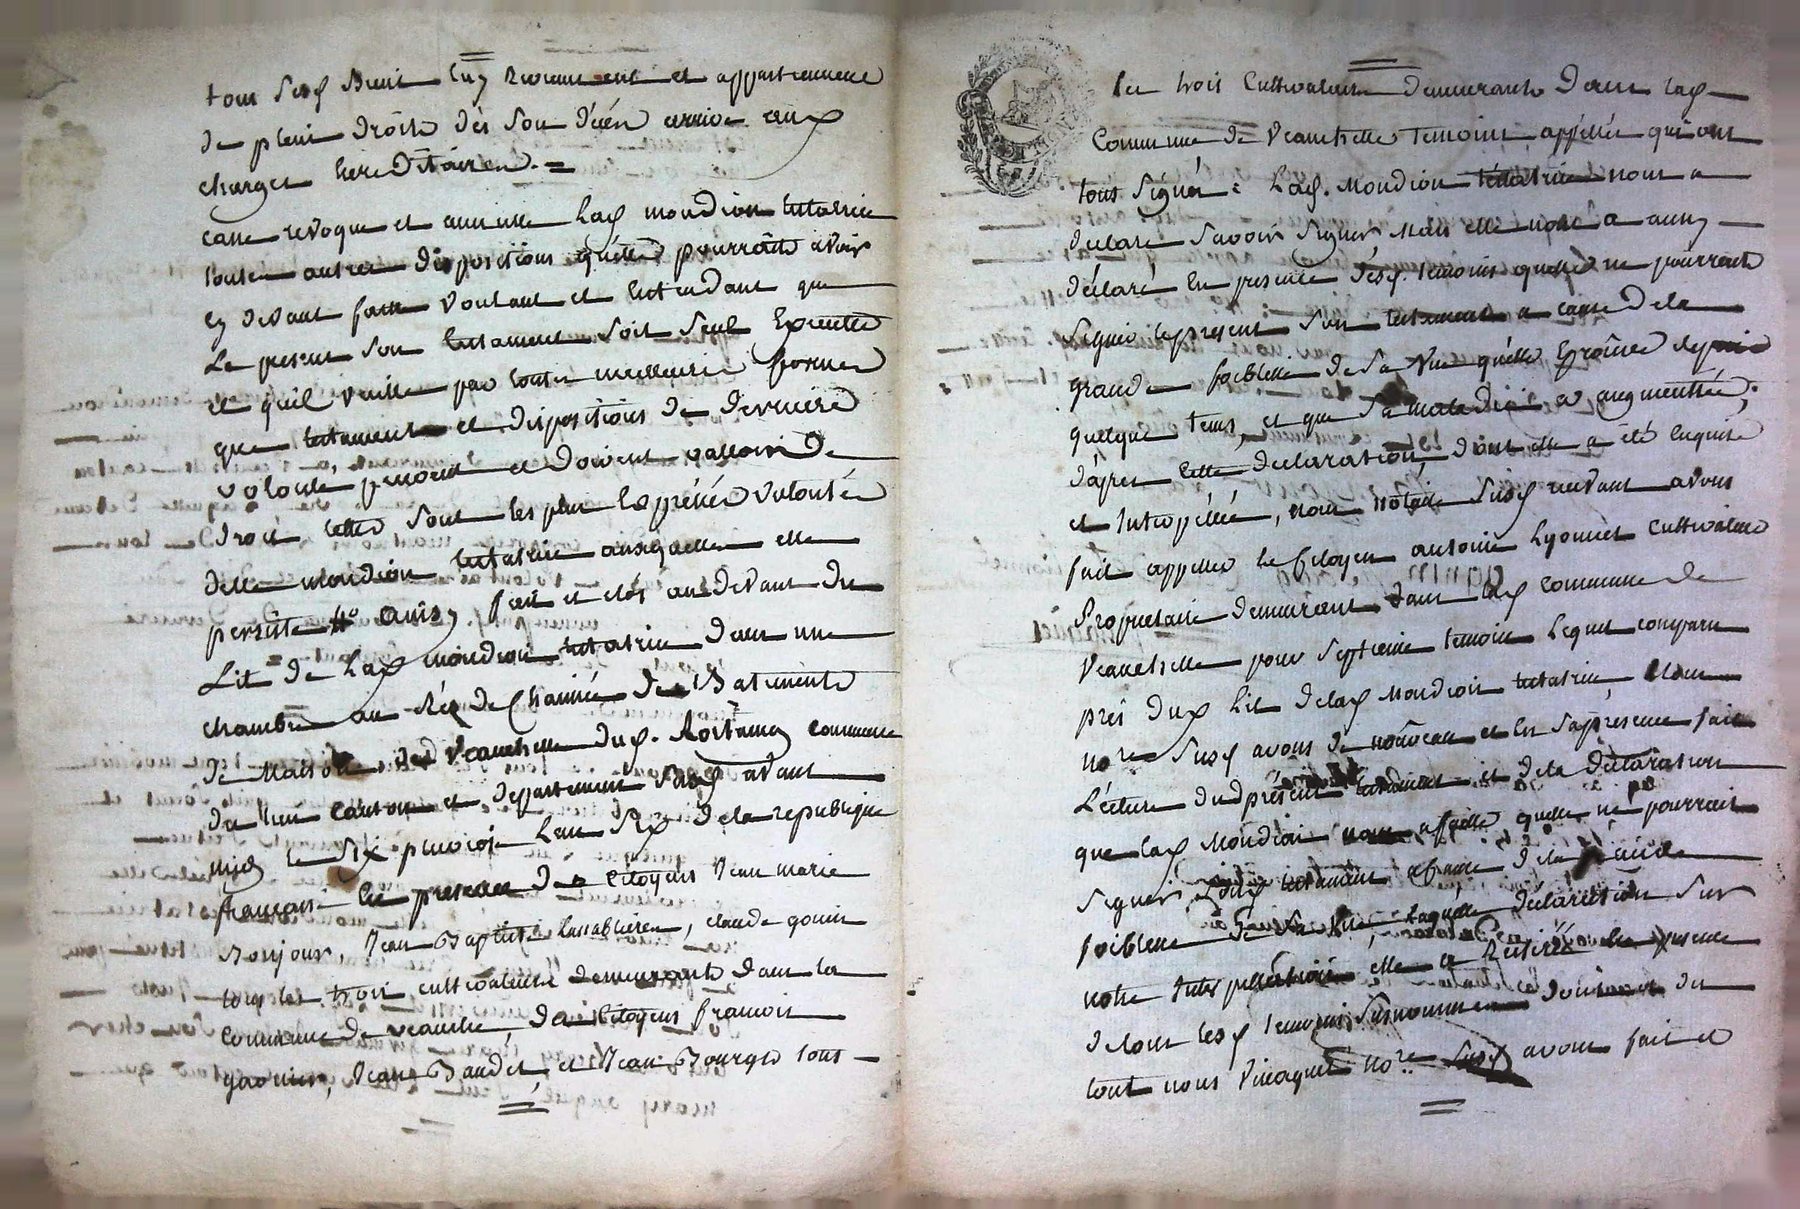 tous ses Biens luy reviennent et appartiennent
de plein droits dès son décés arrivé aux
charges héréditaires. =
casse revoque et annulle lad. mondion testatrice
toutes autres dispositions qu'elle pourroits avoir
cy devant faitte voulant et entendant que
le present son testament soit seul Executté
et qu'il vaille par touttes meilleures formes
que testament et dispositions de derniere
volonté, peuvent et doivent valloir de
droit, telles sont les plus expresses volontés
delle mondion testatrice ausquelles elle
persiste, ainsy fait et clos au devant du
Lit de lad. mondion testatrice dans une
chambre au Réz de Chaussée de Batiments
de Maison, de Veauchette commune
du lieu canton et departement susd. avant
midy le six pluviose l'an six de la republique
françoise En presence des citoyens Jean marie
Bonjour, Jean Baptiste, claude gouin
tous les trois cultivateurs demeurants dans la
commune de veauche, des citoyens francois
, Jean Baudet et Jean Bourge tous
les trois Cultivateurs demeurants dans lad.
Commune de Veauchette temoins appellés qui ont
tous signés = Lad. Mondion testatrice nous a
declaré savoir signer mais elle nous a aussy
déclaré En presence desd. temoins qu'elle ne pourroit
signer le present son testament a cause de la
grande foiblesse de sa vue qu'elle Eprouve depuis
quelque tems, et que sa maladie a augmentée;
d'apres cette declaration, dont elle a été Enquise
et Interpellée, nous notaire susd. recevant avons
fait appeller le Citoyen antoine Lyonnet Cultivateur
Proprietaire demeurant dans lad. commune de
Veauchette pour septieme temoin lequel comparu
près dud. Lit de lad. Mondion testatrice, Nous
no.re susd. avons de nouveau et En sa presence fait
Lecture dud. présent testament et de la déclaration
que lad. Mondion nous a faitte qu'elle ne pourroit
signer sond. testament a cause de la
foiblesse de sa Vue, laquelle déclaration sur
notre Interpellation, elle a Réitéré En presence
de tous lesd. temoins susnommés du
tout nous no.re susd. avons fait et